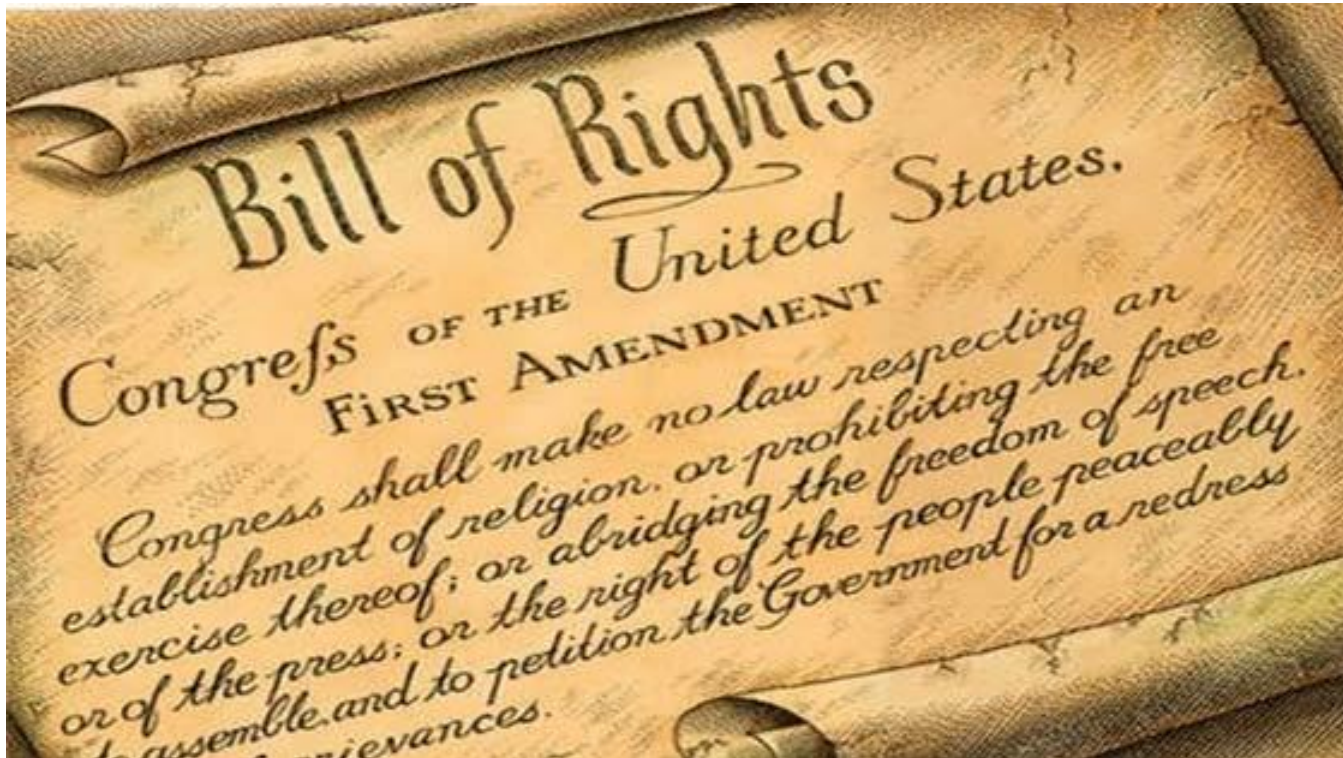 Bill of Rights
Congreſs OF THE United States.
FIRST AMENDMENT
Congress shall make no law respecting an
establishment of religion, or prohibiting the free
exercise thereof; or abridging the freedom of speech,
or of the press; or the right of the people peaceably
to assemble, and to petition the Government for a redress
grievances.